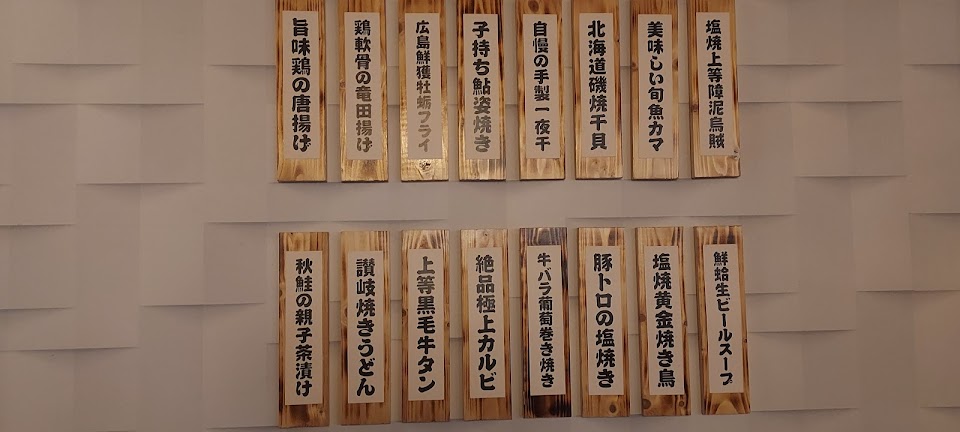 塩焼上等障泥烏賊
美味しい旬魚カマ
北海道磯焼干貝
自慢の手製一夜干
子持ち鮎姿焼き
広島鮮獲牡蛎フライ
鶏軟骨の竜田揚げ
旨味鶏の唐揚げ
鮮蛤生ビールスープ
塩焼黄金焼き鳥
豚トロの塩焼き
牛バラ葡萄巻き焼き
絶品極上カルビ
上等黒毛牛タン
讃岐焼きうどん
秋鮭の親子茶漬け